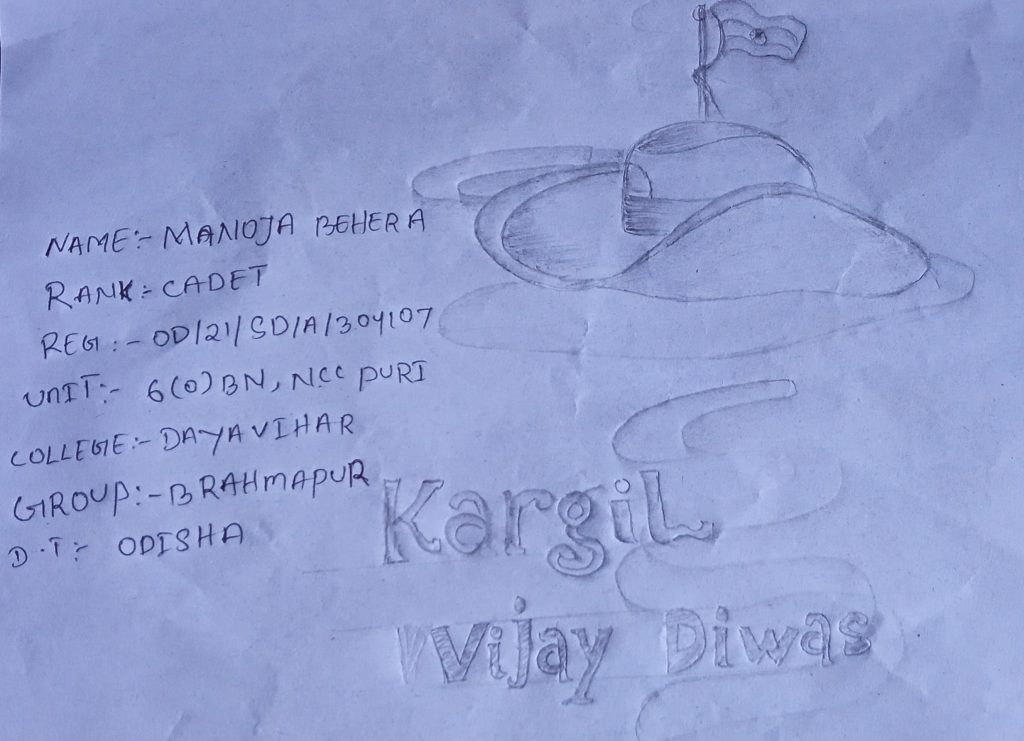 NAME:- MANOJA BEHERA
RANK:- CADET
REG:- OD/21/SD/A/304107
UNIT:- 6(O) BN, NCC PURI
COLLEGE:- DAYAVIHAR
GROUP:- BRAHMAPUR
D.T:- ODISHA
Kargil
Vijay Diwas